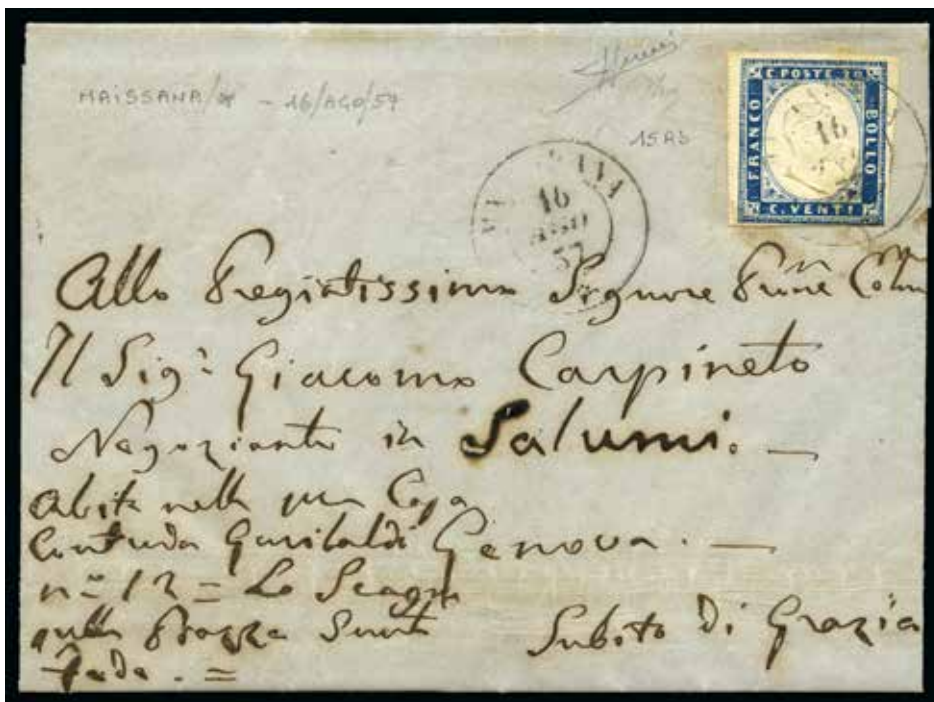 MAISSANA/ - 16/AGO/57
15Ab
C. POSTE 20
FRANCO
BOLLO
C. VENTI
16
16
AGO
57
Allo Pregiatissimo Signore Prone Colmo
Il Sig.r Giacomo Carpineto
Negoziante in Salumi. —
Abita nella
Contrada Garibaldi Genova. —
n.o 12 = Lo Scagno
sulla Piazza
Fede. =
Subito di Grazia